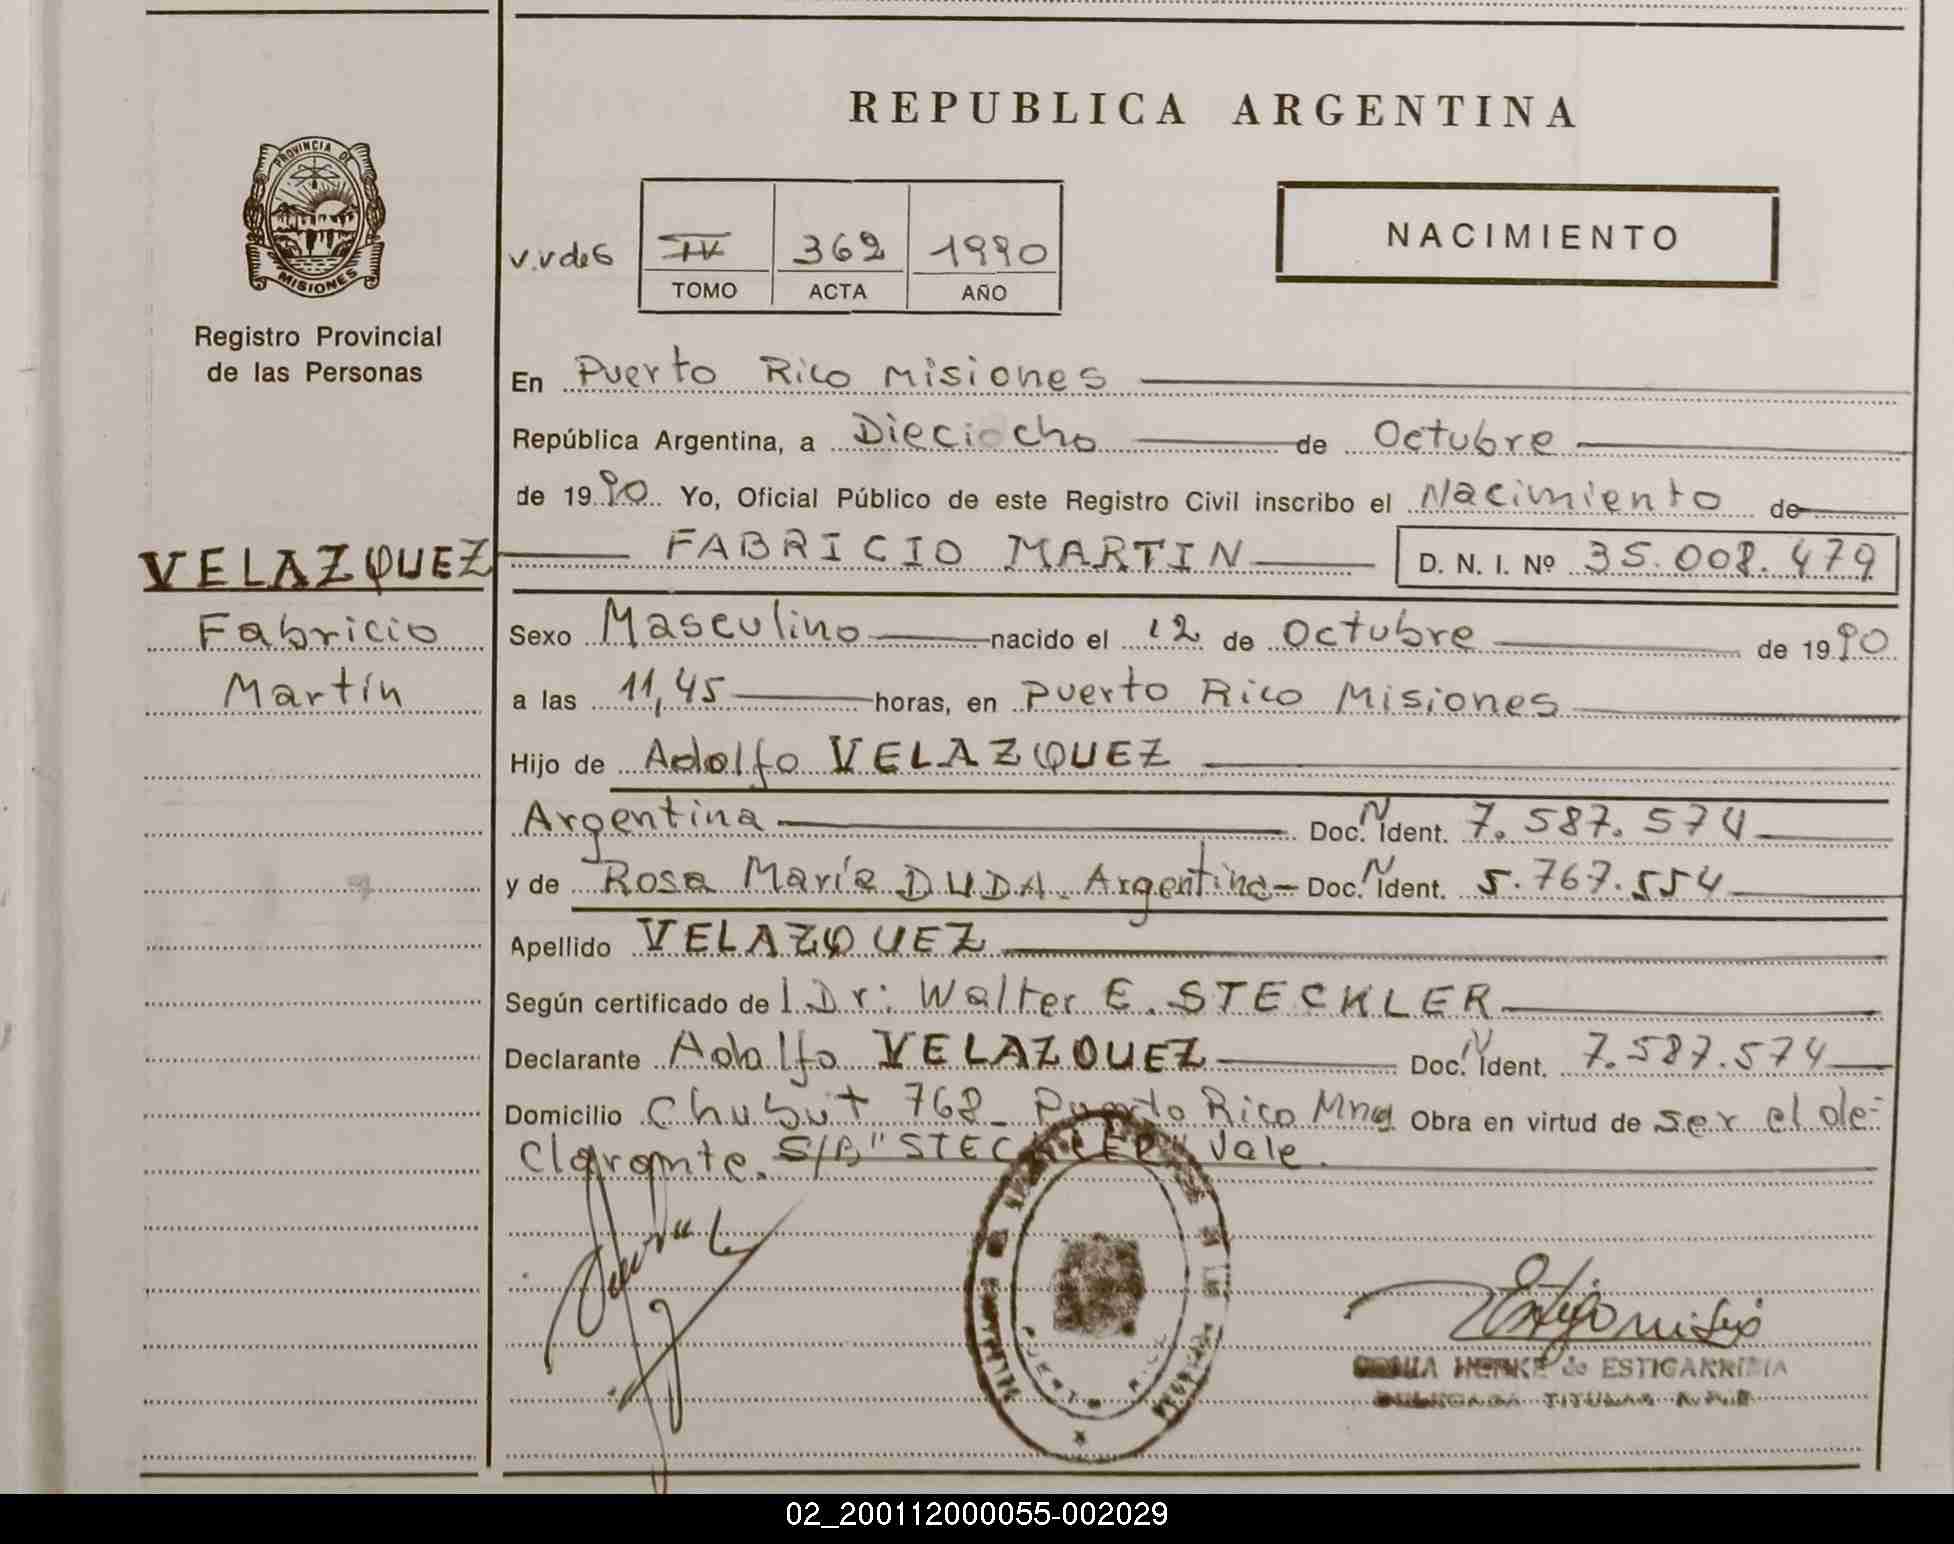 REPUBLICA ARGENTINA
PROVINCIA DE
MISIONES
Registro Provincial
de las Personas
v.v de 6
IV 362 1990
TOMO ACTA AÑO
NACIMIENTO
En Puerto Rico Misiones
República Argentina, a Dieciocho de Octubre
de 1990 Yo, Oficial Público de este Registro Civil inscribo el Nacimiento de
VELAZQUEZ
Fabricio
Martín
FABRICIO MARTIN D. N. I. Nº 35.008.479
Sexo Masculino nacido el 12 de Octubre de 1990
a las 11,45 horas, en Puerto Rico Misiones
Hijo de Adolfo VELAZQUEZ
Argentina Doc. N. Ident. 7.587.574
y de Rosa María DUDA. Argentina Doc. N. Ident. 5.767.554
Apellido VELAZQUEZ
Según certificado del Dr: Walter E. STECKLER
Declarante Adolfo VELAZQUEZ Doc. N. Ident. 7.587.574
Domicilio Chubut 768 Puerto Rico Mnes Obra en virtud de ser el de-
clarante. S/B "STECKLER" Vale.
de ESTIGARRIBIA
TITULAR
02_200112000055-002029